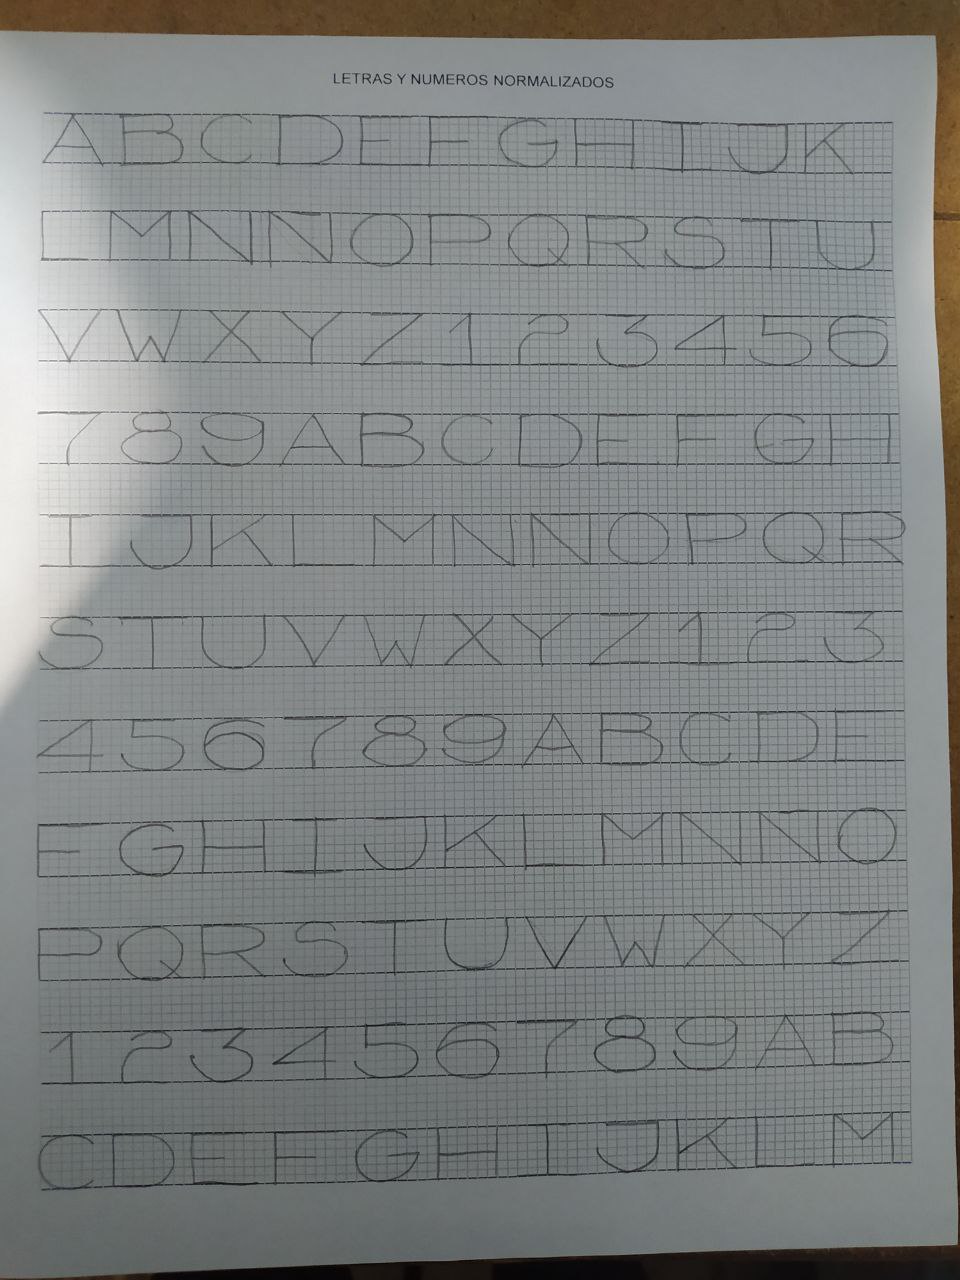 LETRAS Y NUMEROS NORMALIZADOS
A B C D E F G H I J K
L M N N O P Q R S T U
V W X Y Z 1 2 3 4 5 6
7 8 9 A B C D E F G H
I J K L M N N O P Q R
S T U V W X Y Z 1 2 3
4 5 6 7 8 9 A B C D E
F G H I J K L M N N O
P Q R S T U V W X Y Z
1 2 3 4 5 6 7 8 9 A B
C D E F G H I J K L M